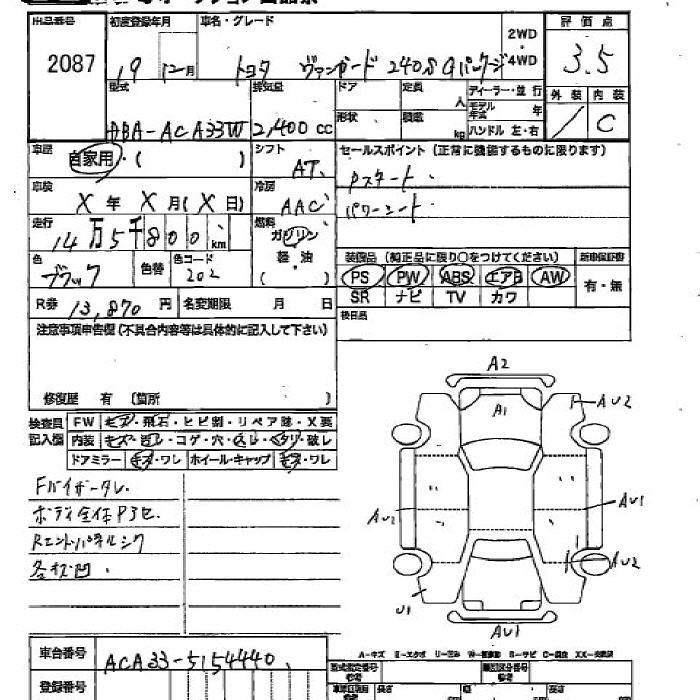 出品番号 初度登録年月 車名・グレード 2WD 評価点
2087 19年 12月 トヨタ ヴァンガード 240S Gパッケージ 4WD 3.5
型式 排気量 ドア 定員 人 ディーラー・並行 外装 内装
DBA-ACA33W 2,400cc 形状 積載 kg モデル年式 年 / C
ハンドル 左・右
車歴 自家用・( ) シフト AT セールスポイント(正常に機能するものに限ります)
車検 X年 X月(X日) 冷房 AAC Pスタート
パワーシート
走行 14万5千800km 燃料 ガソリン
軽・油
( )
装備品(純正品に限り○をつけてください) 新車保証書
色 ブラック 色替 色コード 202
PS PW ABS エアB AW 有・無
SR ナビ TV カワ
R券 13,870円 名変期限 月 日
後日品
注意事項申告欄(不具合内容等は具体的に記入して下さい)
修復歴 有 (箇所 )
検査員記入欄 FW キズ・飛石・ヒビ割・リペア跡・X要
内装 キズ・ヨゴレ・コゲ・穴・スレ・ヘタリ・破レ
ドアミラー キズ・ワレ ホイール・キャップ キズ・ワレ
Fバイザータレ
ボディ全体
各 凹
A2
A1
AU2
AU2
AU1
AU2
U1
AU1
車台番号 ACA33-5154440
登録番号
A-キズ E-エクボ U-凹み W-補修跡 S-サビ C-腐食 XX-交換済
型式指定番号 類別区分番号
長さ 幅 高さ